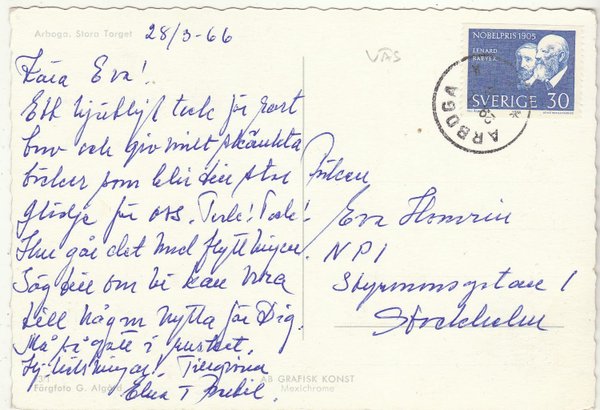 Arboga, Stora Torget
28/3-66
VÄS
Kära Eva!
Ett hjärtligt tack för rart
brev och givmilt skänkta
böcker som blir till stor
glädje för oss. Tack! Tack!
Hur går det med flyttningen.
Säg till om vi kan vara
till någon nytta för Dig.
Må så gott i rusket.
Hj. hälsningar. Tillgivna
Elsa
Fröken
Eva
NPI
1
Stockholm
NOBELPRIS 1905
LENARD
BAEYER
SVERIGE 30
ARBOGA
Färgfoto G. Algård
AB GRAFISK KONST
Mexichrome